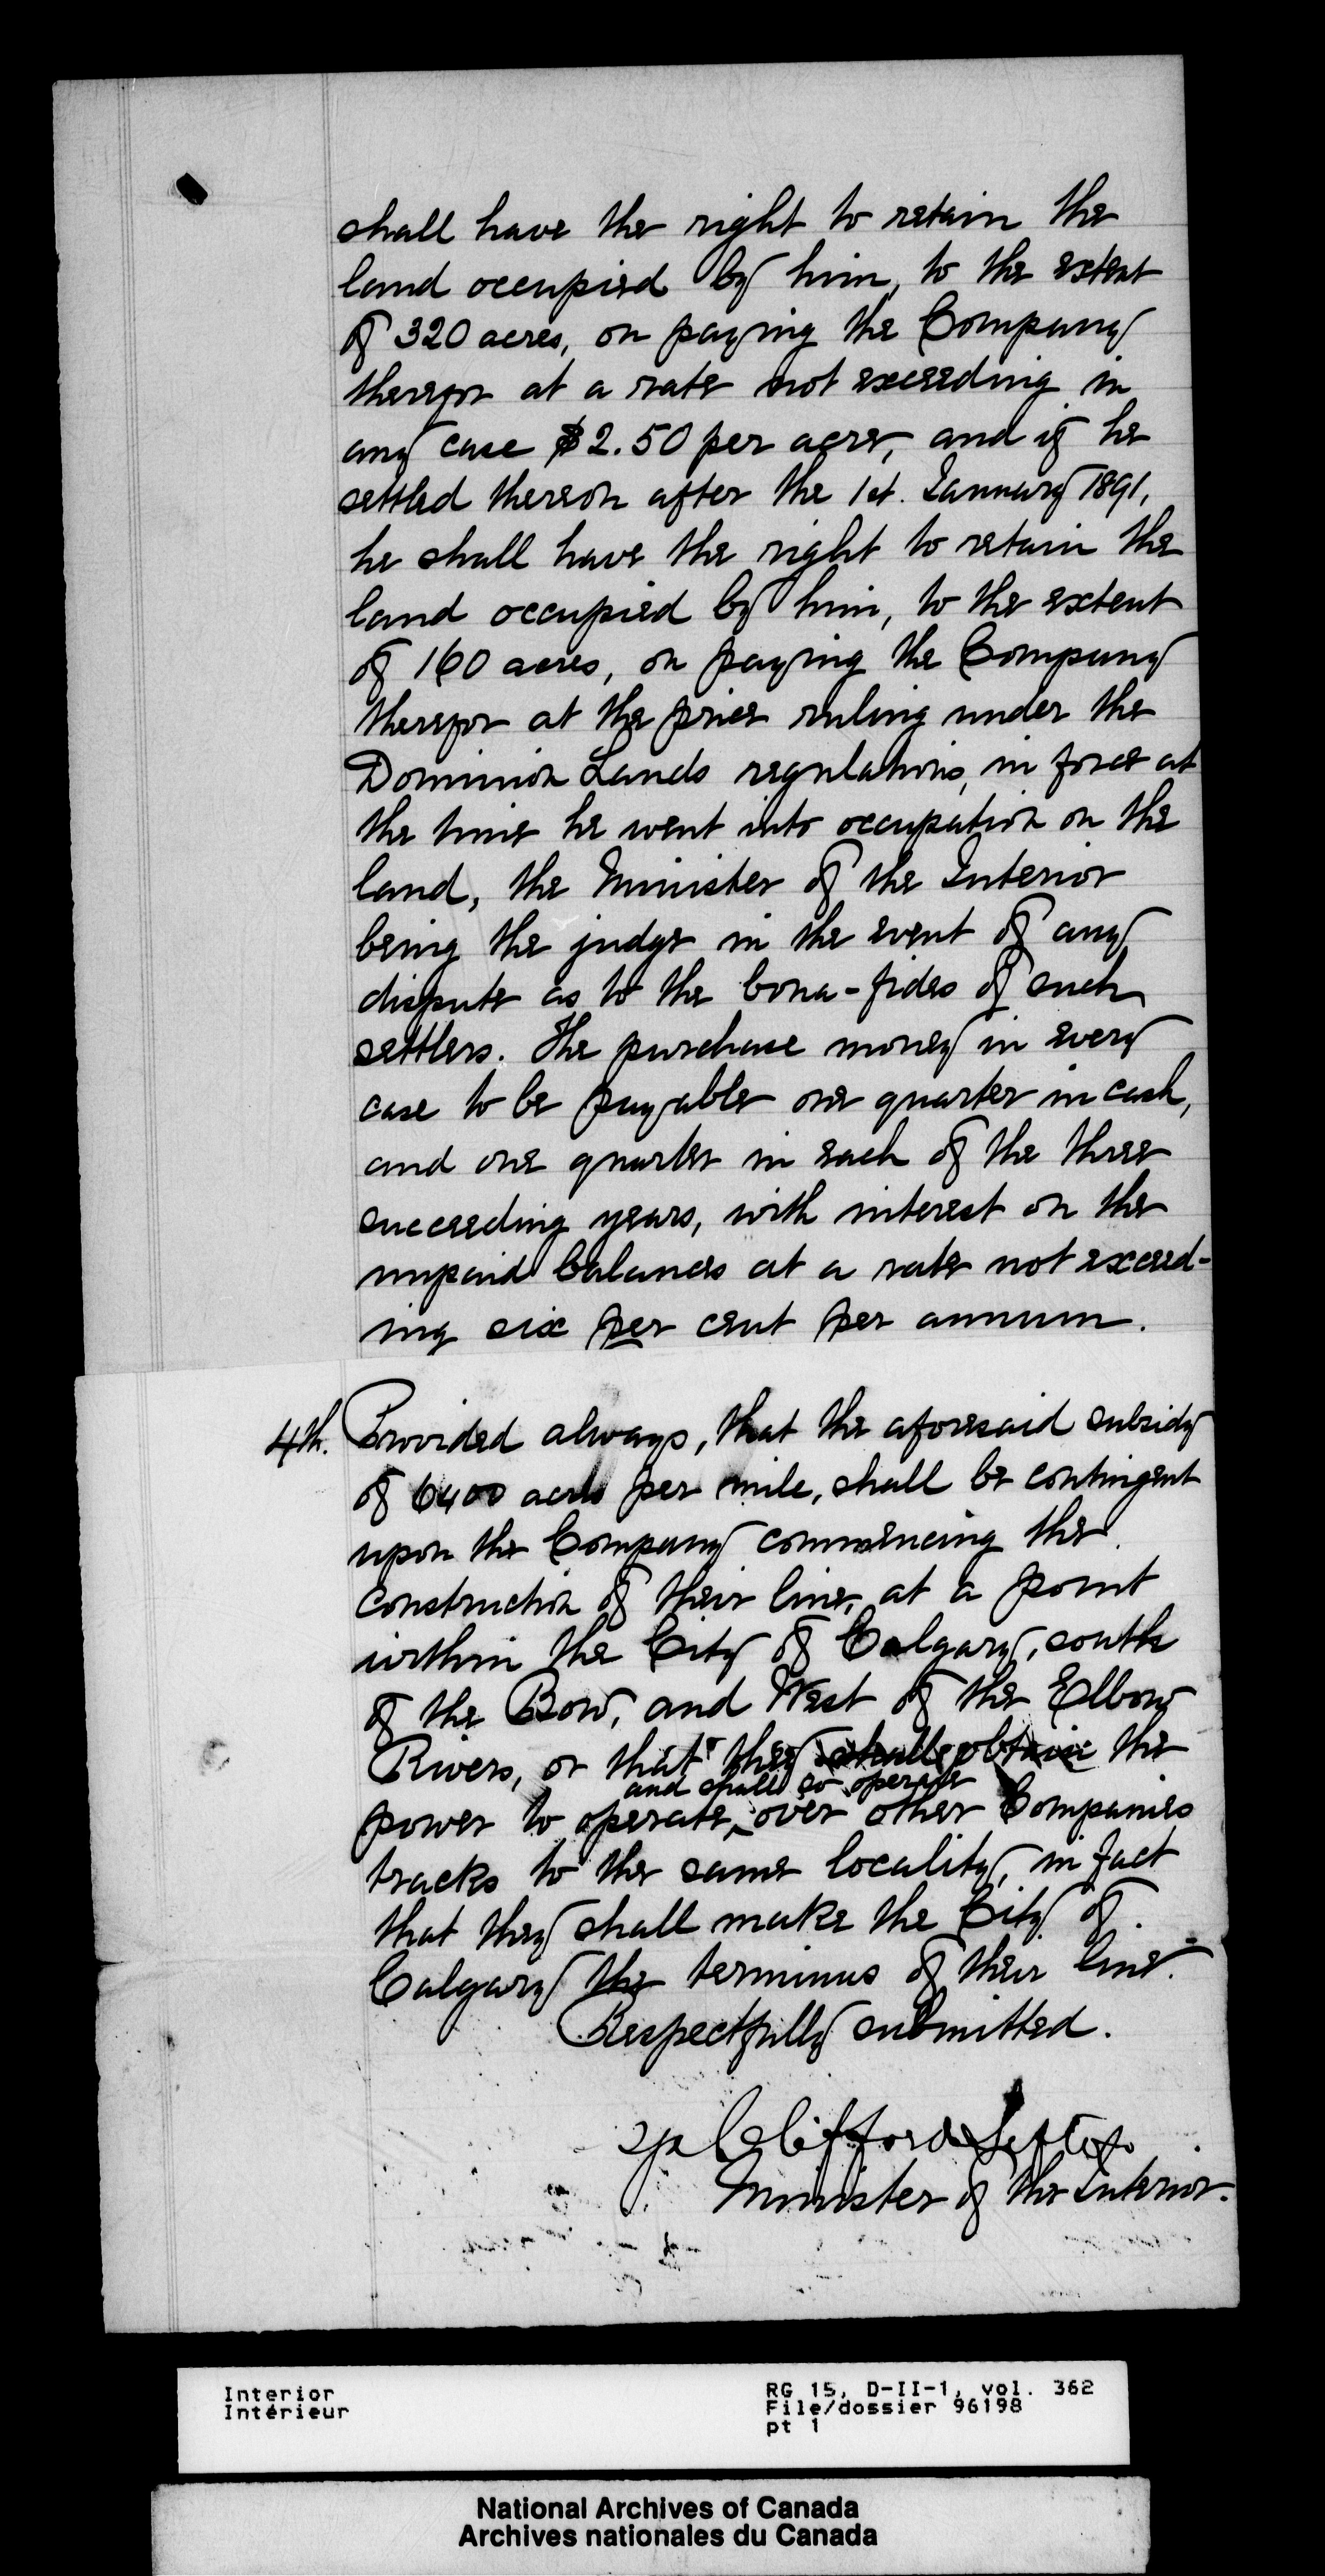 shall have the right to retain the
land occupied by him, to the extent
of 320 acres, on paying the Company
therefor at a rate not exceeding in
any case $2.50 per acre, and if he
settled thereon after the 1st. January 1891,
he shall have the right to retain the
land occupied by him, to the extent
of 160 acres, on paying the Company
therefor at the price ruling under the
Dominion Lands regulations, in force at
the time he went into occupation on the
land, the Minister of the Interior
being the judge in the event of any
dispute as to the bona-fides of such
settlers. The purchase money in every
case to be payable one quarter in cash,
and one quarter in each of the three
succeeding years, with interest on the
unpaid balances at a rate not exceed-
ing six per cent per annum.
4th. Provided always, that the aforesaid subsidy
of 6400 acres per mile, shall be contingent
upon the Company commencing the
construction of their line, at a point
within the City of Calgary, south
of the Bow, and West of the Elbow
Rivers, or that they shall obtain the
and shall so operate
power to operate, over other Companies
tracks to the same locality, in fact
that they shall make the City of
Calgary the terminus of their line.
Respectfully submitted.
Clifford Sifton
Minister of the Interior.
Interior
Intérieur
RG 15, D-II-1, vol. 362
File/dossier 96198
pt 1
National Archives of Canada
Archives nationales du Canada